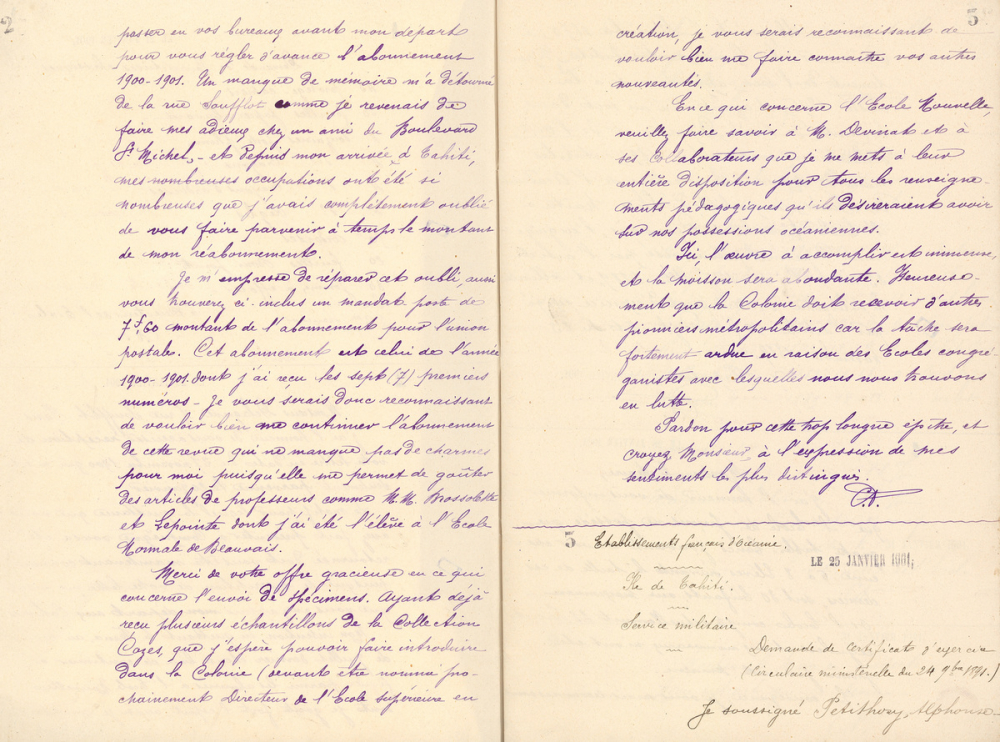 2
passer en vos bureaux avant mon départ
pour vous régler d'avance l'abonnement
1900-1901. Un manque de mémoire m'a détourné
de la rue Soufflot comme je revenais de
faire mes adieux chez un ami du Boulevard
St Michel, - et depuis mon arrivée à Tahiti,
mes nombreuses occupations ont été si
nombreuses que j'avais complètement oublié
de vous faire parvenir à temps le montant
de mon réabonnement.
Je m'empresse de réparer cet oubli, aussi
vous trouverez ci-inclus un mandat poste de
7f,60 montant de l'abonnement pour l'union
postale. Cet abonnement est celui de l'année
1900-1901 dont j'ai reçu les sept (7) premiers
numéros - Je vous serais donc reconnaissant
de vouloir bien me continuer l'abonnement
de cette revue qui ne manque pas de charmes
pour moi puisqu'elle me permet de goûter
des articles de professeurs comme M.M. Brossolette
et Lepointe dont j'ai été l'élève à l'Ecole
Normale de Beauvais.
Merci de votre offre gracieuse en ce qui
concerne l'envoi de spécimens. Ayant déjà
reçu plusieurs échantillons de la Collection
Cazes, que j'espère pouvoir faire introduire
dans la Colonie (devant être nommé pro-
chainement Directeur de l'Ecole supérieure en
3
création, je vous serais reconnaissant de
vouloir bien me faire connaître vos autres
nouveautés.
En ce qui concerne l'Ecole Nouvelle,
veuillez faire savoir à M. Devinat et à
ses Collaborateurs que je me mets à leur
entière disposition pour tous les renseigne-
ments pédagogiques qu'ils désireraient avoir
sur nos possessions océaniennes.
Ici, l'œuvre à accomplir est immense,
et la moisson sera abondante. Heureuse-
ment que la Colonie doit recevoir d'autres
pionniers métropolitains car la tâche sera
fortement ardue en raison des Ecoles congré-
ganistes avec lesquelles nous nous trouvons
en lutte.
Pardon pour cette trop longue épître, et
croyez, Monsieur, à l'expression de mes
sentiments les plus distingués.
5 Etablissements français d'Océanie.
LE 25 JANVIER 1901;
Ile de Tahiti.
Service militaire
Demande de certificat d'exercice
(Circulaire ministérielle du 24 9bre 1891.)
Je soussigné Petithory, Alphonse